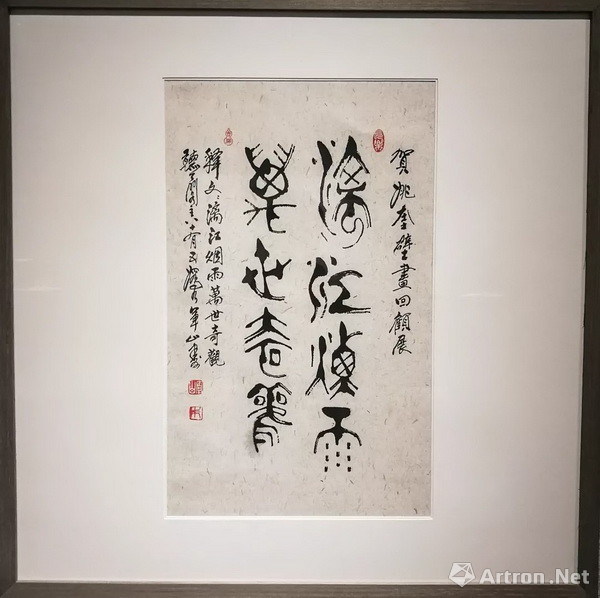 賀姚奎壁畫回顧展
漓江煙雨
萬世奇觀
釋文:漓江烟雨萬世奇觀
主八十有五
Artron.Net